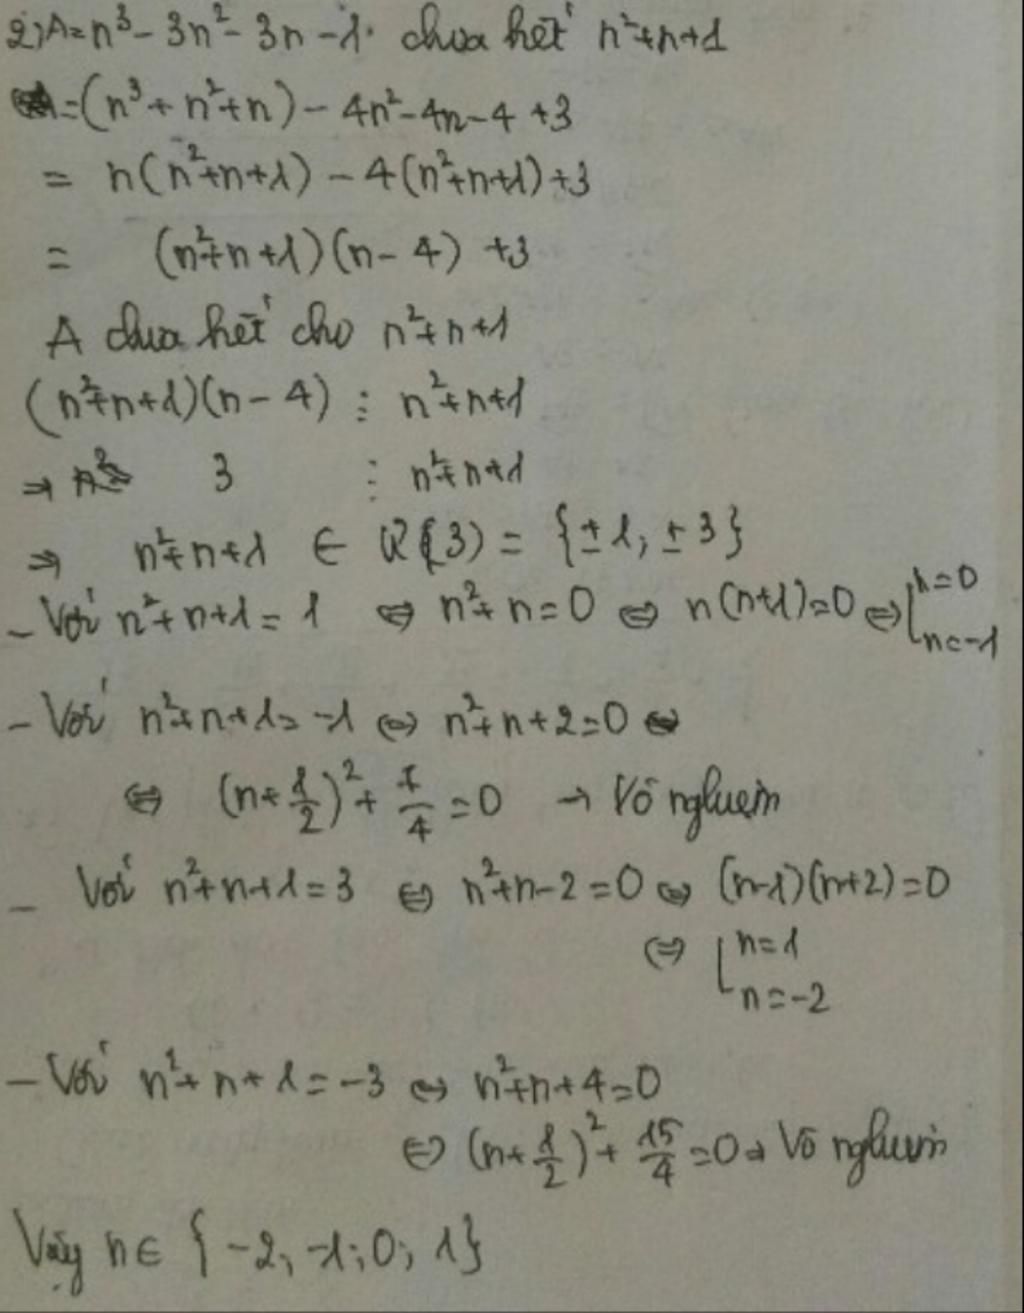 2) A = n³ - 3n² - 3n - 1. chia hết n²+n+1
= (n³ + n² + n) - 4n² - 4n - 4 + 3
= n(n²+n+1) - 4(n²+n+1) + 3
= (n²+n+1)(n-4) + 3
A chia hết cho n²+n+1
(n²+n+1)(n-4) ⋮ n²+n+1
⇒ 3 ⋮ n²+n+1
⇒ n²+n+1 ∈ Ư(3) = {±1; ±3}
- Với n²+n+1 = 1 ⇔ n²+n = 0 ⇔ n(n+1) = 0 ⇔ [n=0
n=-1
- Với n²+n+1 = -1 ⇔ n²+n+2 = 0 ⇔
⇔ (n+1/2)² + 7/4 = 0 → Vô nghiệm
- Với n²+n+1 = 3 ⇔ n²+n-2 = 0 ⇔ (n-1)(n+2) = 0
⇔ [n=1
n=-2
- Với n²+n+1 = -3 ⇔ n²+n+4 = 0
⇔ (n+1/2)² + 15/4 = 0 → Vô nghiệm
Vậy n ∈ {-2; -1; 0; 1}